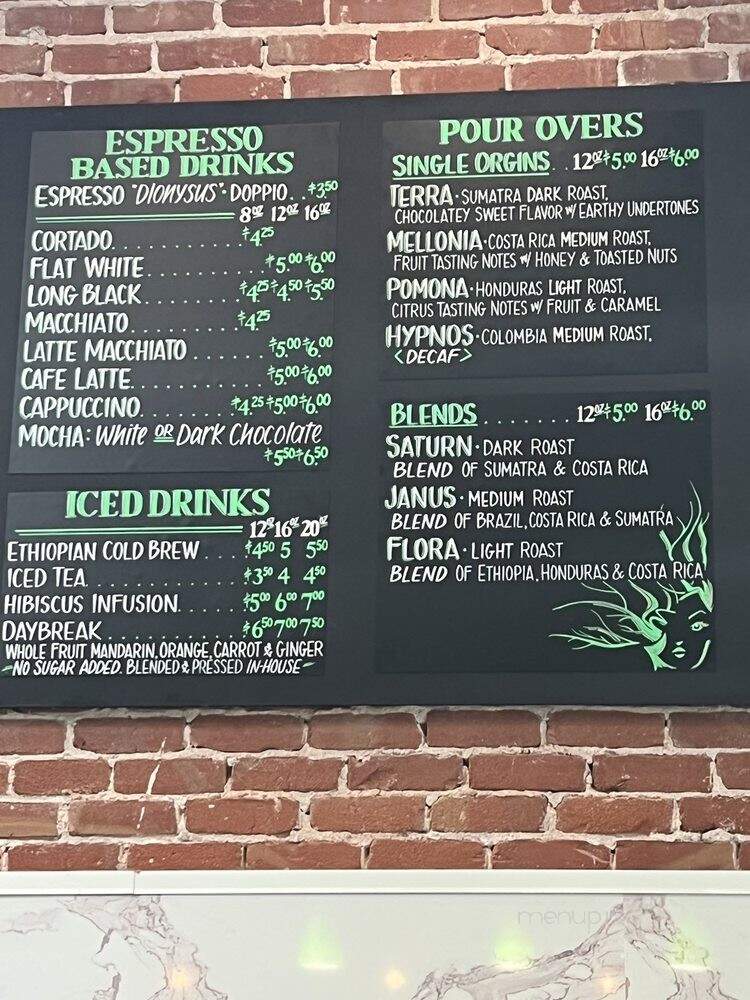 ESPRESSO
BASED DRINKS
ESPRESSO "DIONYSUS"·DOPPIO..$3.50
8oz 12oz 16oz
CORTADO................$4.25
FLAT WHITE............$5.00 $6.00
LONG BLACK..........$4.25 $4.50 $5.50
MACCHIATO............$4.25
LATTE MACCHIATO.......$5.00 $6.00
CAFE LATTE............$5.00 $6.00
CAPPUCCINO.........$4.25 $5.00 $6.00
MOCHA: White OR Dark Chocolate
$5.50 $6.50
ICED DRINKS
12oz 16oz 20oz
ETHIOPIAN COLD BREW....$4.50 5 5.50
ICED TEA..............$3.50 4 4.50
HIBISCUS INFUSION......$5.00 6.00 7.00
DAYBREAK..............$6.50 7.00 7.50
WHOLE FRUIT MANDARIN, ORANGE, CARROT & GINGER
~NO SUGAR ADDED. BLENDED & PRESSED IN-HOUSE~
POUR OVERS
SINGLE ORGINS..12oz $5.00 16oz $6.00
TERRA·SUMATRA DARK ROAST,
CHOCOLATEY SWEET FLAVOR W/ EARTHY UNDERTONES
MELLONIA·COSTA RICA MEDIUM ROAST,
FRUIT TASTING NOTES W/ HONEY & TOASTED NUTS
POMONA·HONDURAS LIGHT ROAST,
CITRUS TASTING NOTES W/ FRUIT & CARAMEL
HYPNOS·COLOMBIA MEDIUM ROAST,
<DECAF>
BLENDS.......12oz $5.00 16oz $6.00
SATURN·DARK ROAST
BLEND OF SUMATRA & COSTA RICA
JANUS·MEDIUM ROAST
BLEND OF BRAZIL, COSTA RICA & SUMATRA
FLORA·LIGHT ROAST
BLEND OF ETHIOPIA, HONDURAS & COSTA RICA